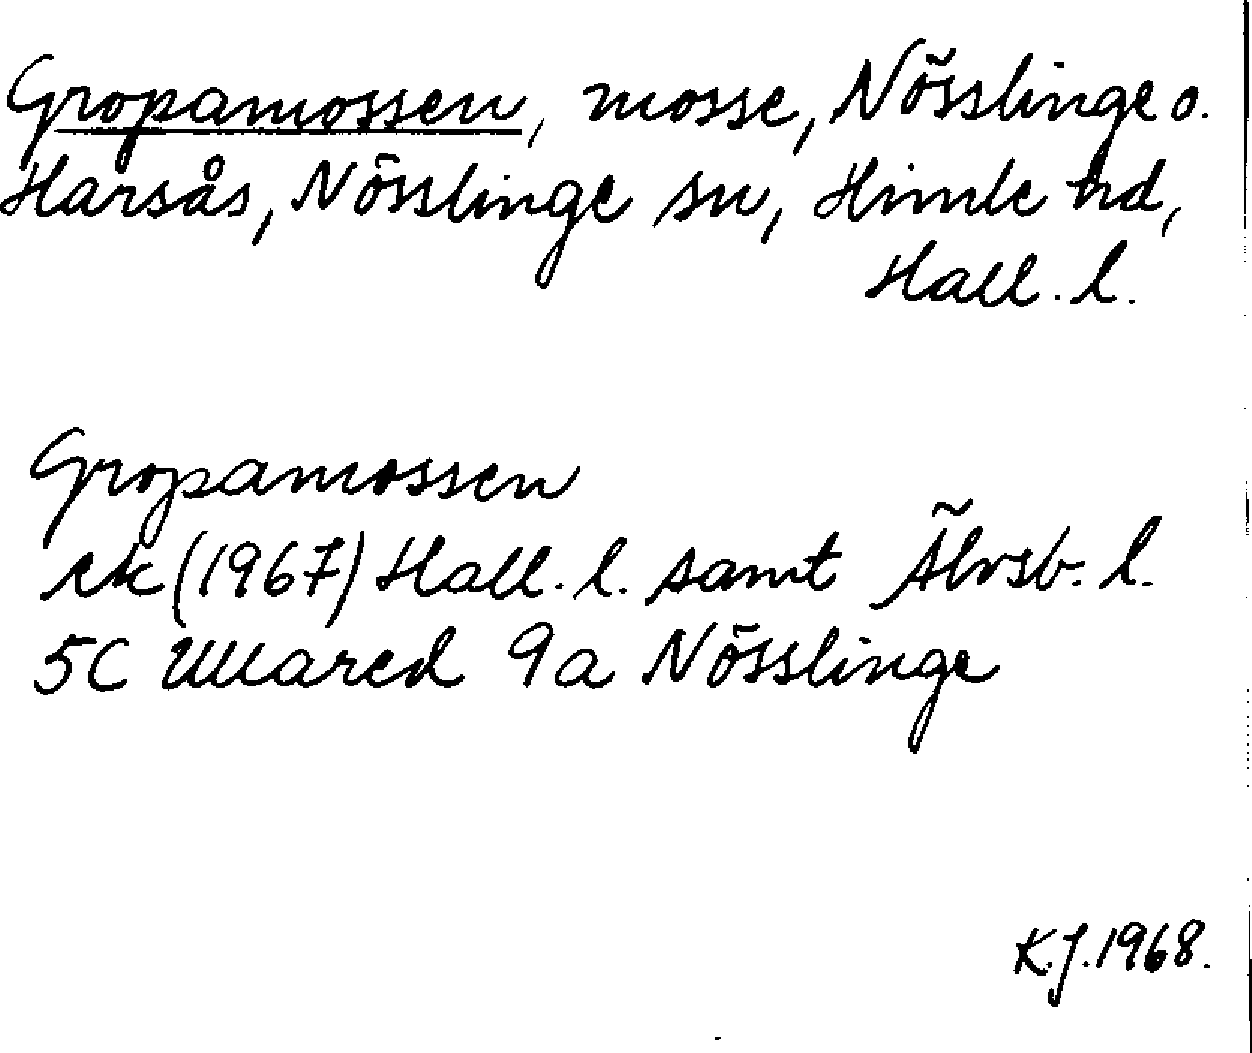 Gropamossen, mosse, Nösslinge o.
Harsås, Nösslinge sn, Himle hd,
Hall. l.
Gropamossen
ek (1967) Hall. l. samt Älvsb. l.
5C Ullared 9a Nösslinge
K.J. 1968.